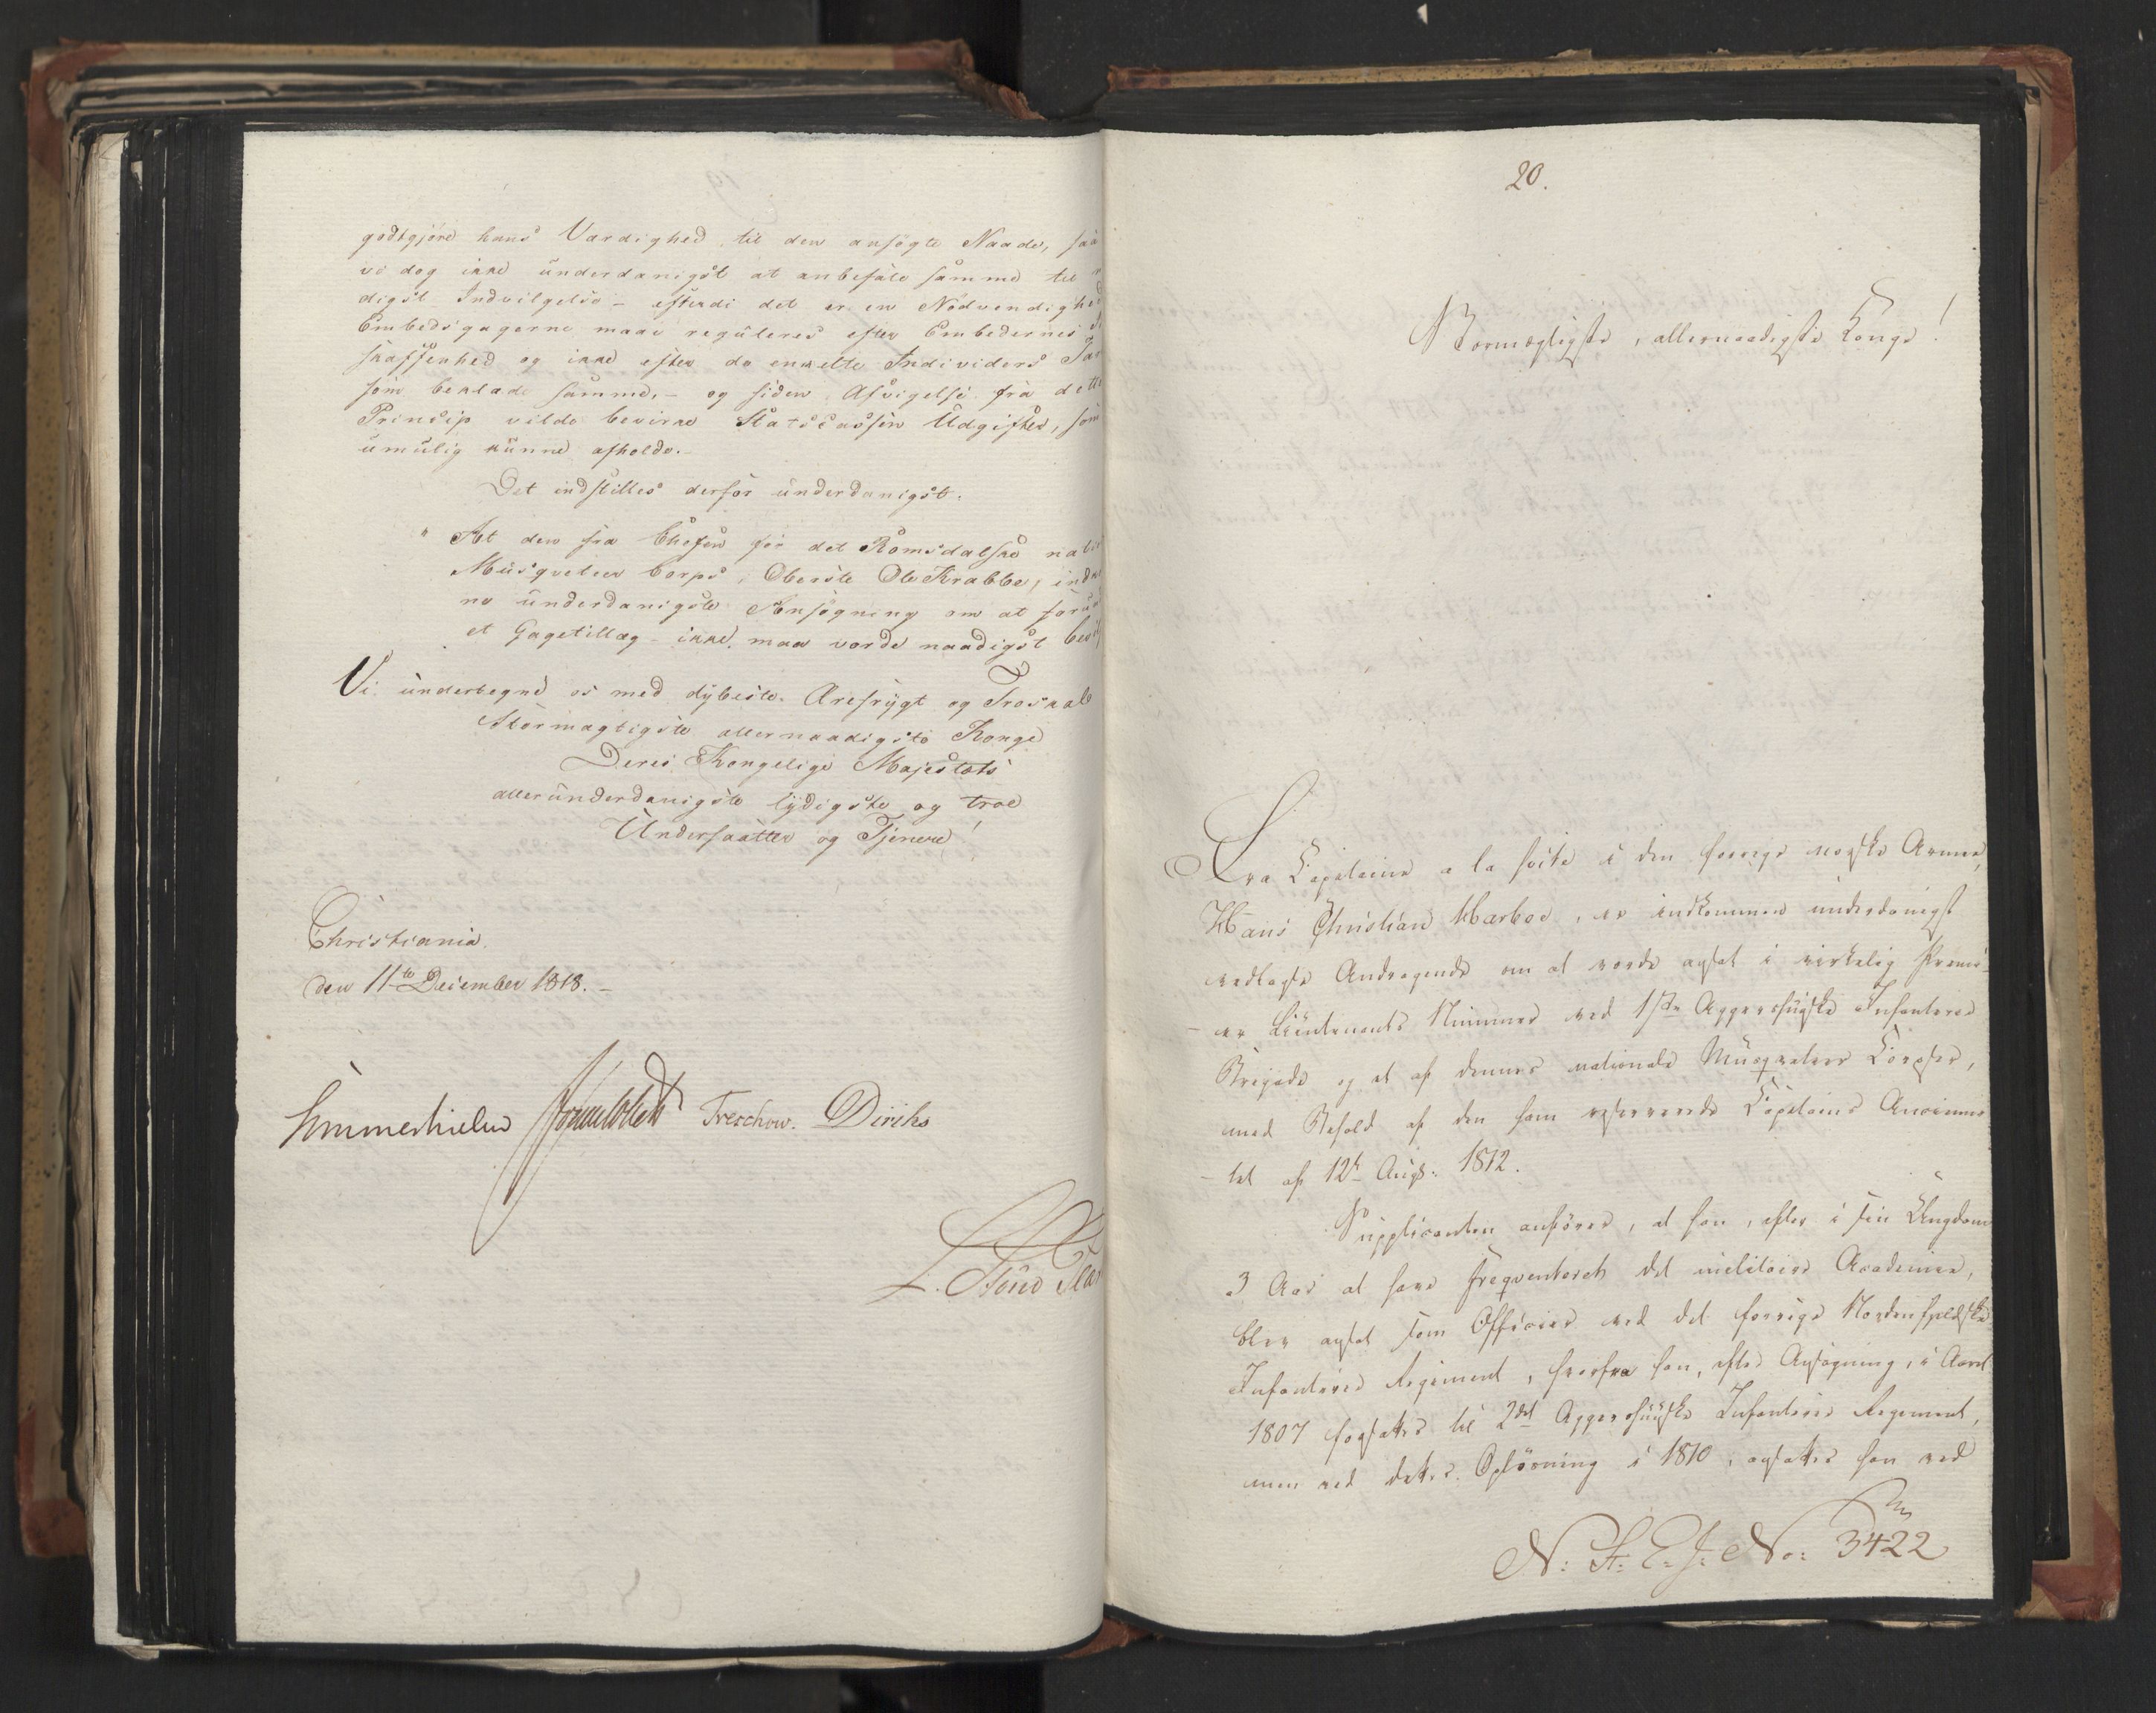 godtgjøre hans Værdighed til den ansøgte Naade, saa
vi dog ikke underdanigst at anbefale samme til
digst Indvilgelse – efterdi det er en Nødvendighed
Embedsgagerne maae reguleres efter Embedernes
skaffenhed og ikke efter de enkelte Individers
som beklæde samme, – og siden Afvigelse fra dette
Princip vilde bevirke Statscassen Udgifter, som
umulig kunne afholde. –
Det indstilles derfor underdanigst:
" At den fra Chefen for det Romsdalske
Musqveteer Corps, Oberste Ole Krabbe,
ne underdanigste Ansøgning om at
et Gagetillæg – ikke maa vorde naadigst
Vi undertegne os med dybeste Ærefrygt og Troskab
Stormægtigste allernaadigste Konge
Deres Kongelige Majestæts
allerunderdanigste lydigste og troe
Undersaatter og Tjenere!
Christiania
den 11te December 1818. –
Sommerhielm Treschow. Diriks
20.
Stormægtigste, allernaadigste Konge!
Fra Capitaine a la suite i den forrige norske Armee,
Hans Christian Harboe, er indkommen underdanigst
vedlagte Andragende om at vorde ansat i virkelig Premi-
- er Lieutenants Nummer ved 1ste Aggershuusske Infanterie
Brigade og et af dennes nationale Musqveteer Corpser,
med Behold af den ham Capitains Ancienne-
- tet af 12te Aug: 1812.
Supplicanten anfører, at han, efter i sin Ungdom
3 Aar at have freqventeret det militaire Academie,
blev ansat som Officier ved det forrige Nordenfjeldske
Infanterie Regiment, hvorfra han, efter Ansøgning, i Aaret
1807 forsattes til 2det Aggershuusske Infanterie Regiment,
men ved dettes Opløsning i 1810, ansattes han ved
N: St: E: J: No: 3422